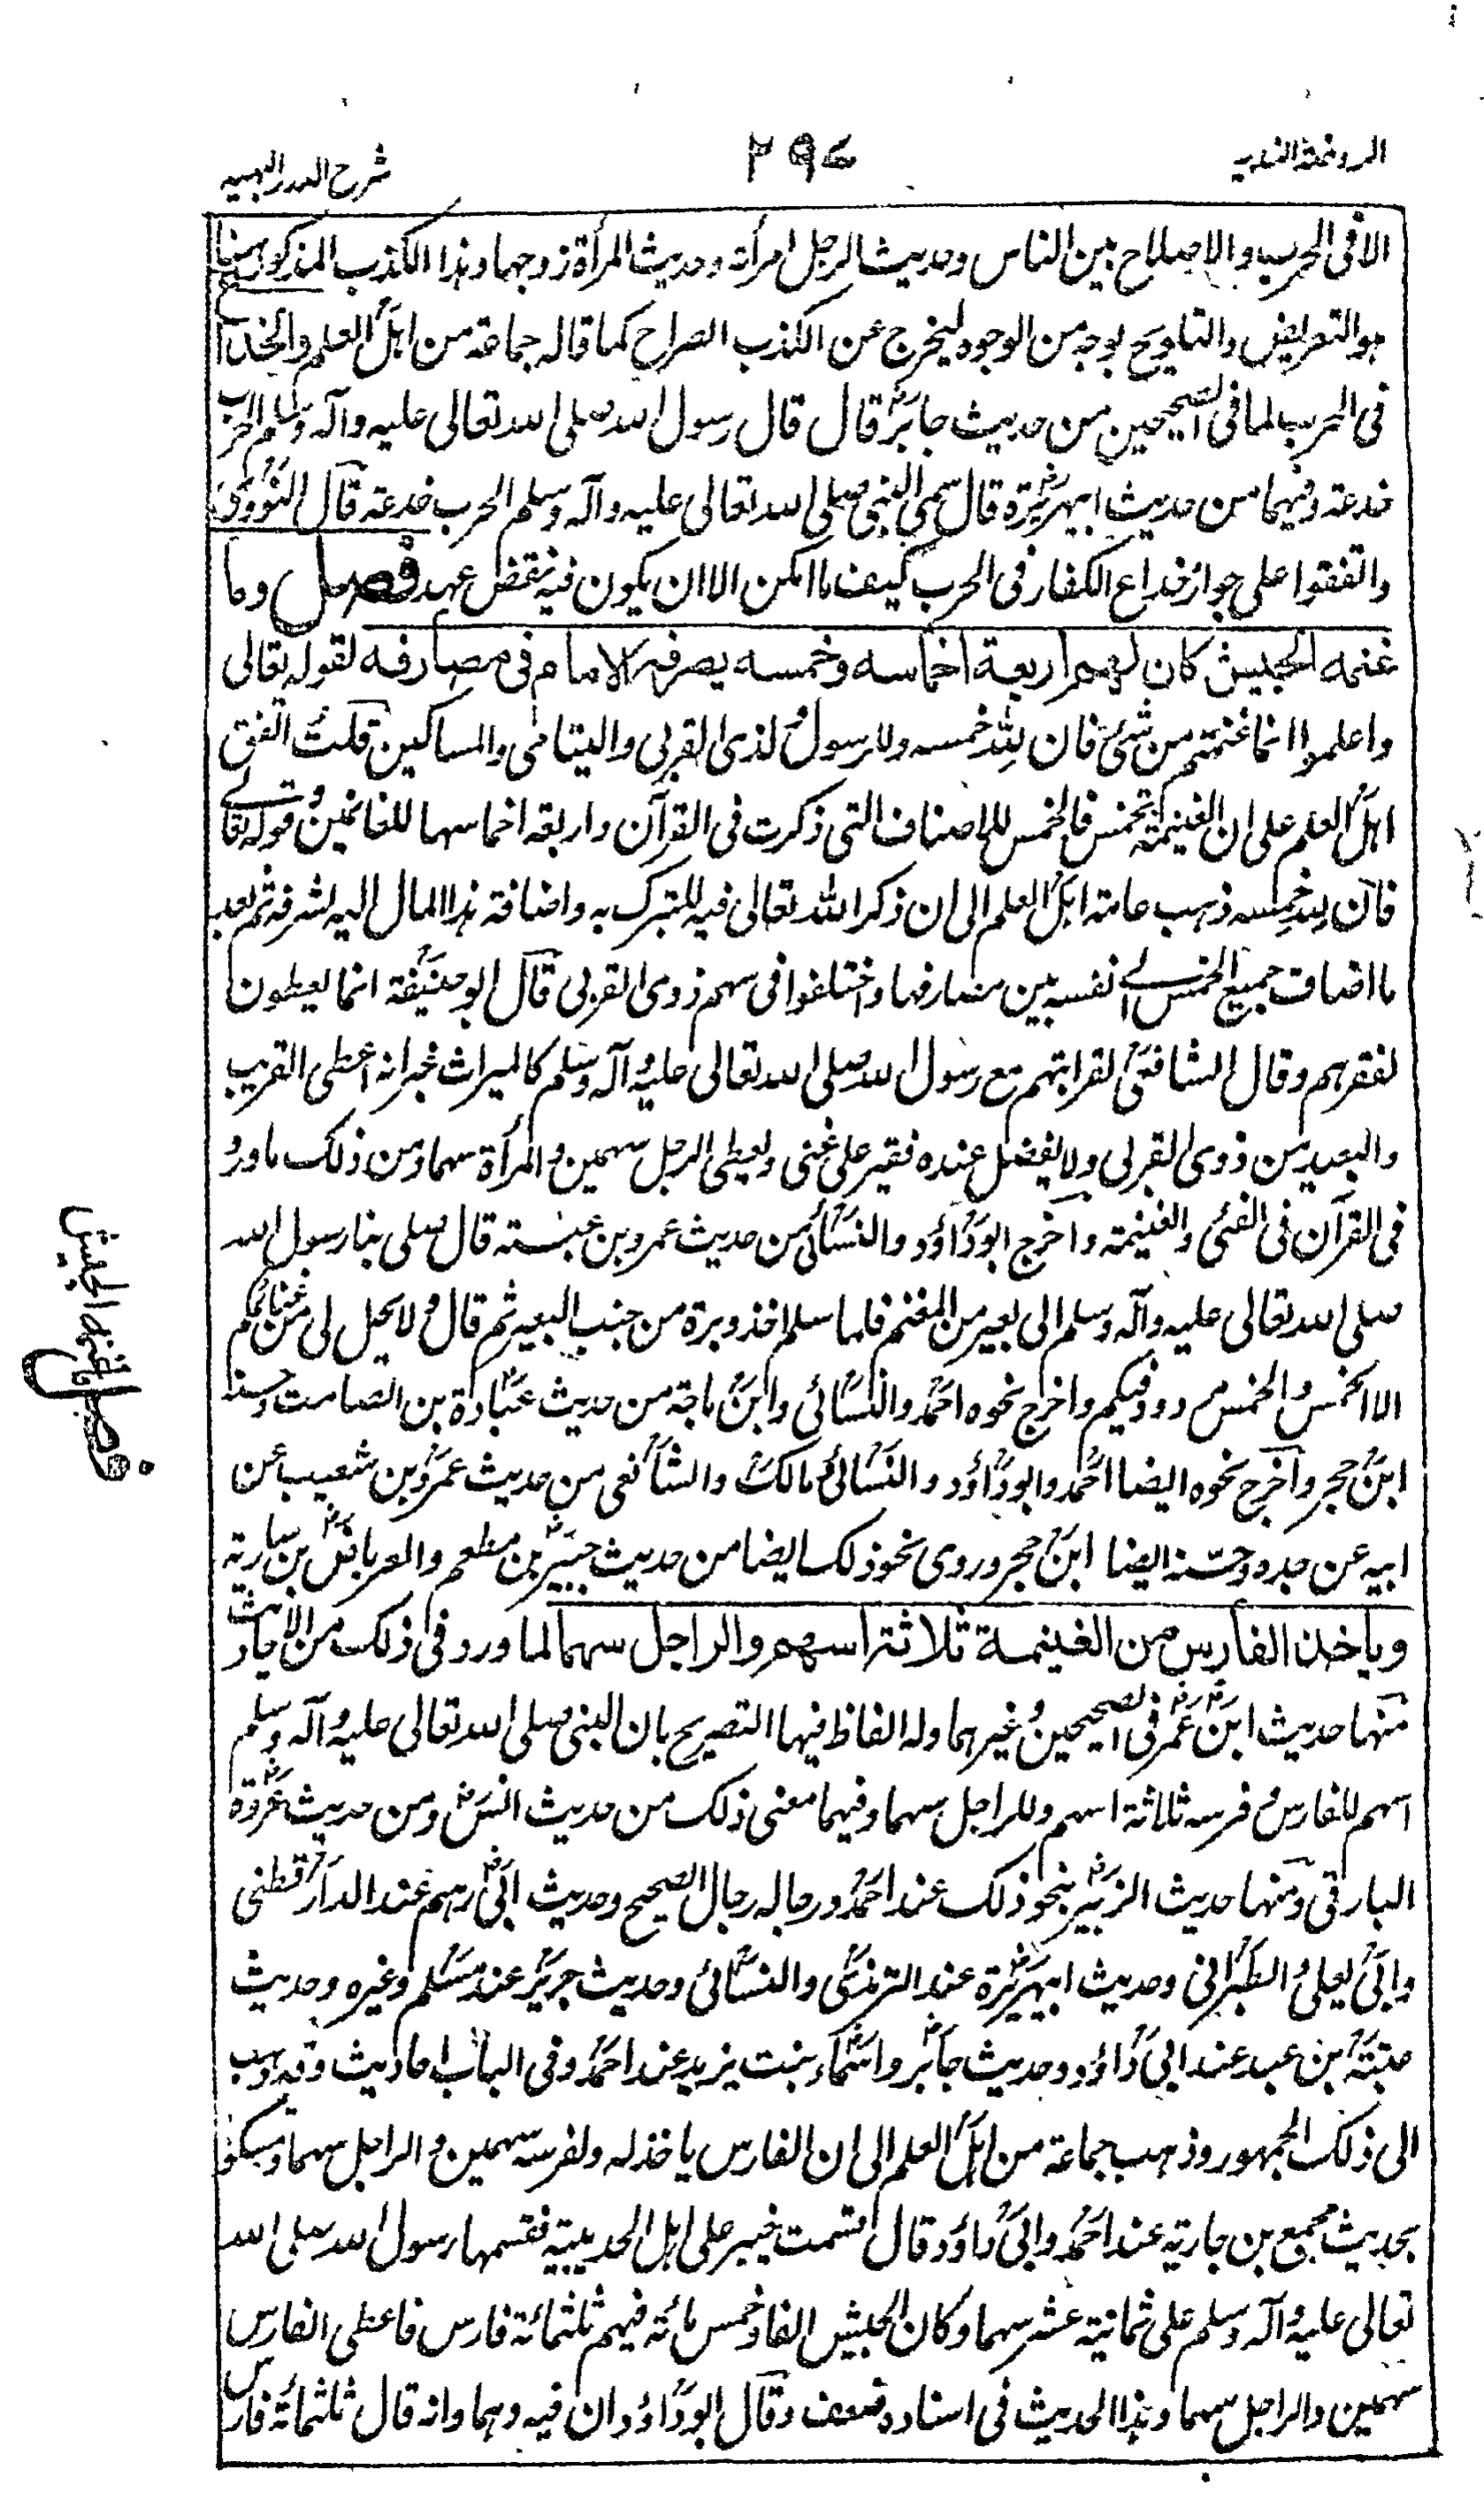 الروضة الندية
٢٩٧
شرح الدرر البهية
الا فى الحرب والاصلاح بين الناس وحديث الرجل امرأته وحديث المرأة زوجها وهذا الكذب المذكور هنا
هو التعريض والتلويح بوجه من الوجوه ليخرج عن الكذب الصراح كما قاله جماعة من اهل العلم والخداع
فى الحرب لما فى الصحيحين من حديث جابر قال قال رسول الله صلى الله تعالى عليه وآله وسلم الحرب
خدعة وفيهما من حديث ابيهريرة قال سمى النبى صلى الله تعالى عليه وآله وسلم الحرب خدعة قال النووى
واتفقوا على جواز خداع الكفار فى الحرب كيف ما امكن الا ان يكون فيه نقض عهد فصل وما
غنمه الجيش كان لهم اربعة اخماسه وخمسه يصرفه الامام فى مصارفه لقوله تعالى
واعلموا انما غنمتم من شئ فان لله خمسه وللرسول ولذى القربى واليتامى والمساكين قلت اتفق
اهل العلم على ان الغنيمة تخمس فالخمس للاصناف التى ذكرت فى القرآن واربعة اخماسها للغانمين وقوله تعالى
فان لله خمسه ذهب عامة اهل العلم الى ان ذكر الله تعالى فيه للتبرك به واضافة هذا المال اليه لشرفه ثم بعد
ما اضاف جميع الخمس الى نفسه بين مصارفها واختلفوا فى سهم ذوى القربى قال ابو حنيفة انما يعطون
لفقرهم وقال الشافعى لقرابتهم مع رسول الله صلى الله تعالى عليه وآله وسلم كالميراث غير انه اعطى القريب
والبعيد من ذوى القربى ولا يفضل عنده فقير على غنى ويعطى الرجل سهمين والمرأة سهما ومن ذلك ما ورد
فى القرآن فى الفئ والغنيمة واخرج ابو داؤد والنسائى من حديث عمرو بن عبسة قال صلى بنا رسول الله
صلى الله تعالى عليه وآله وسلم الى بعير من المغنم فلما سلم اخذ وبرة من جنب البعير ثم قال ولا يحل لى من غنائمكم
الا الخمس والخمس مردود فيكم واخرج نحوه احمد والنسائى وابن ماجة من حديث عبادة بن الصامت وحسنه
ابن حجر واخرج نحوه ايضا احمد وابو داؤد والنسائى ومالك والشافعى من حديث عمرو بن شعيب عن
ابيه عن جده وحسنه ايضا ابن حجر وروى نحو ذلك ايضا من حديث جبير بن مطعم والعرباض بن سارية
وياخذ الفارس من الغنيمة ثلاثة اسهم والراجل سهما لما ورد فى ذلك من الاحاديث
منها حديث ابن عمر فى الصحيحين وغيرهما وله الفاظ فيها التصريح بان النبى صلى الله تعالى عليه وآله وسلم
اسهم للفارس وفرسه ثلاثة اسهم وللراجل سهما وفيهما معنى ذلك من حديث انس ومن حديث عروة
البارقى ومنها حديث الزبير بنحو ذلك عند احمد ورجاله رجال الصحيح وحديث ابى رهم عند الدارقطنى
وابى يعلى والطبرانى وحديث ابيهريرة عند الترمذى والنسائى وحديث جرير عند مسلم وغيره وحديث
عتبة بن عبد عند ابى داؤد وحديث جابر واسماء بنت يزيد عند احمد وفى الباب احاديث وقد ذهب
الى ذلك الجمهور وذهب جماعة من اهل العلم الى ان الفارس ياخذ له ولفرسه سهمين والراجل سهما وتمسكوا
بحديث مجمع بن جارية عند احمد وابى داؤد قال قسمت خيبر على اهل الحديبية فقسمها رسول الله صلى الله
تعالى عليه وآله وسلم على ثمانية عشر سهما وكان الجيش الفا وخمس مائة فيهم ثلثمائة فارس فاعطى الفارس
سهمين والراجل سهما وهذا الحديث فى اسناده ضعف وقال ابو داؤد ان فيه وهما وانه قال ثلثمائة فارس
فصل ما غنمه الجيش